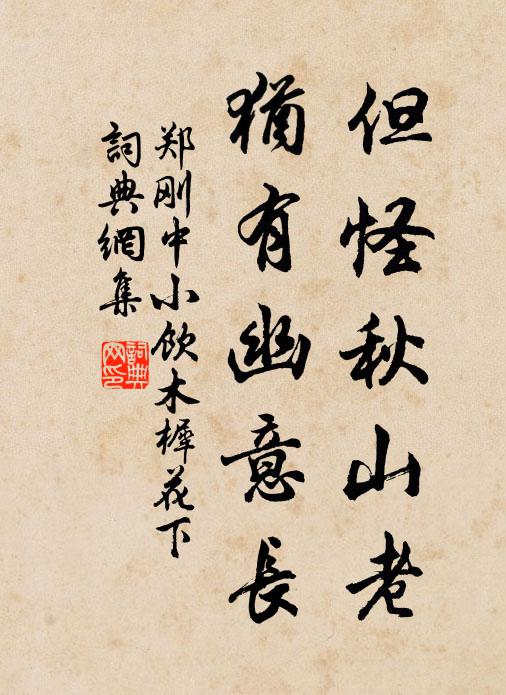 但怪秋山老
猶有幽意長
郑刚中小饮木樨花下
詞典網集
詞典网印